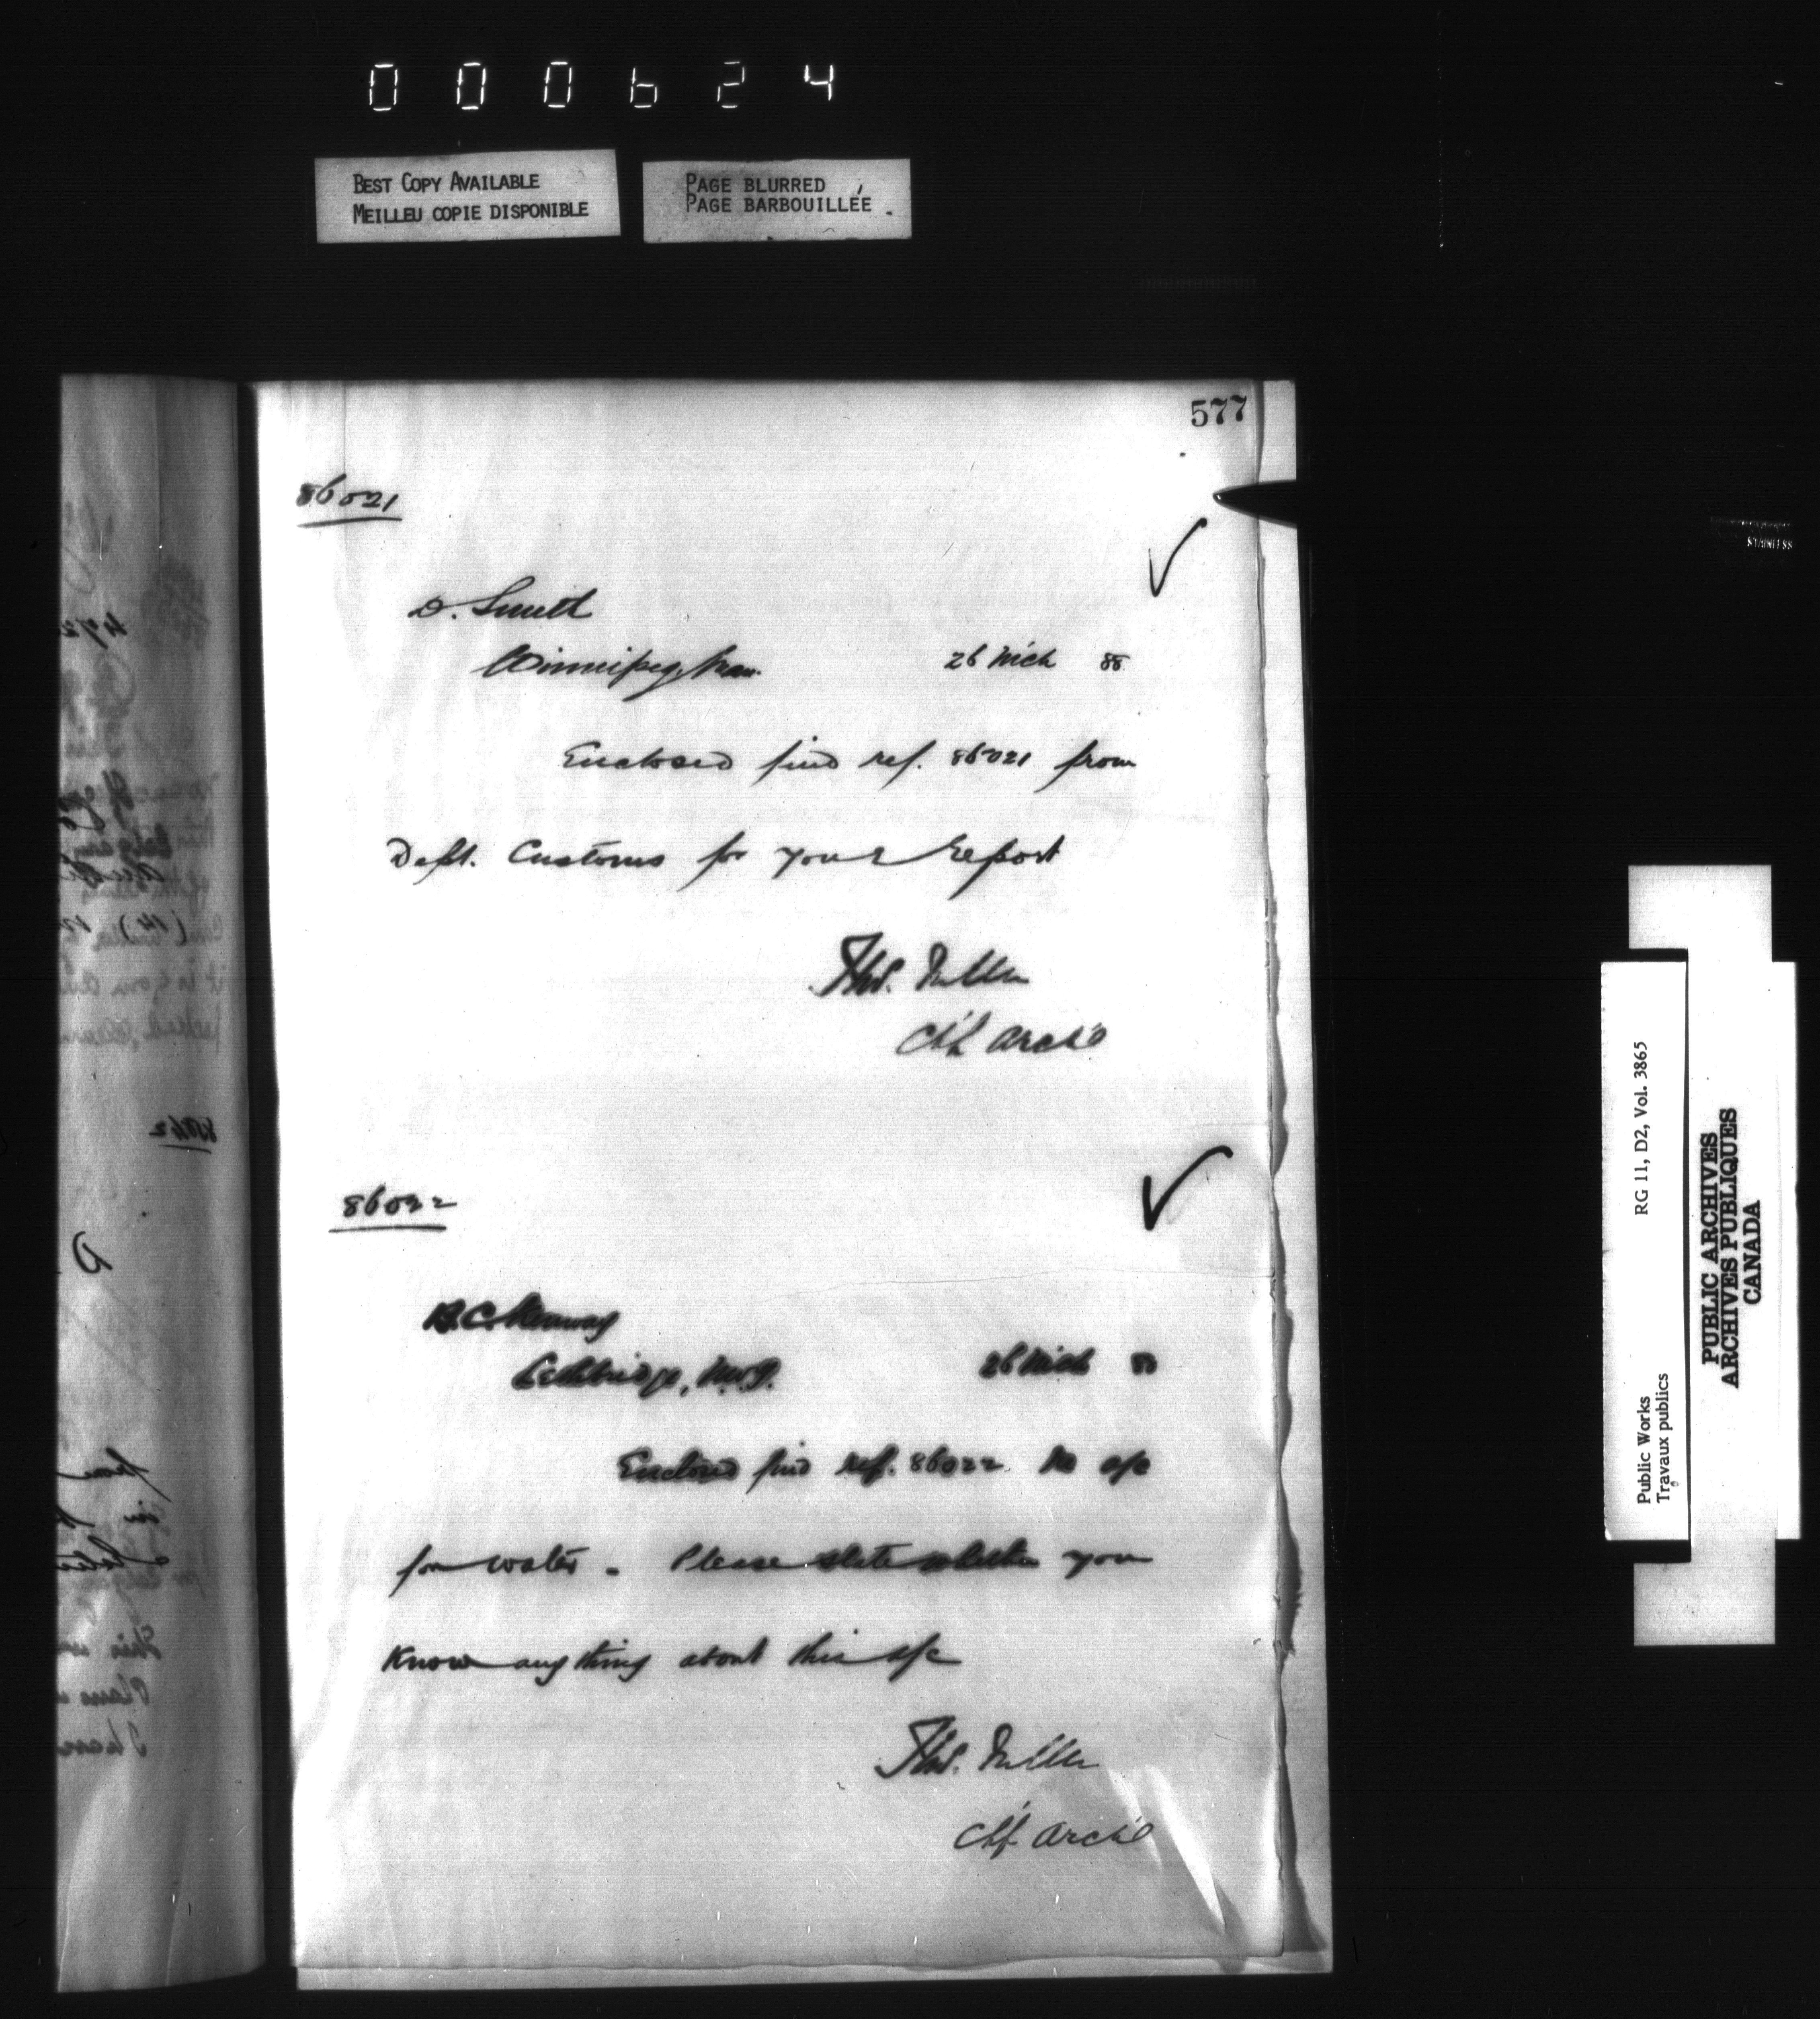 000624
BEST COPY AVAILABLE
MEILLEU COPIE DISPONIBLE
PAGE BLURRED
PAGE BARBOUILLÉE
577
86021
D. Smith
Winnipeg, Man. 26 Mch 88
Enclosed find ref. 86021 from
Dept. Customs for your report
Thos. Fuller
Chf Archt
86022
Lethbridge, N.W.T. 26 Mch 88
Enclosed find ref. 86022 re a/c
for water. Please state whether you
Know anything about this a/c
Thos. Fuller
Chf Archt
Public Works
Travaux publics
RG 11, D2, Vol. 3865
PUBLIC ARCHIVES
ARCHIVES PUBLIQUES
CANADA